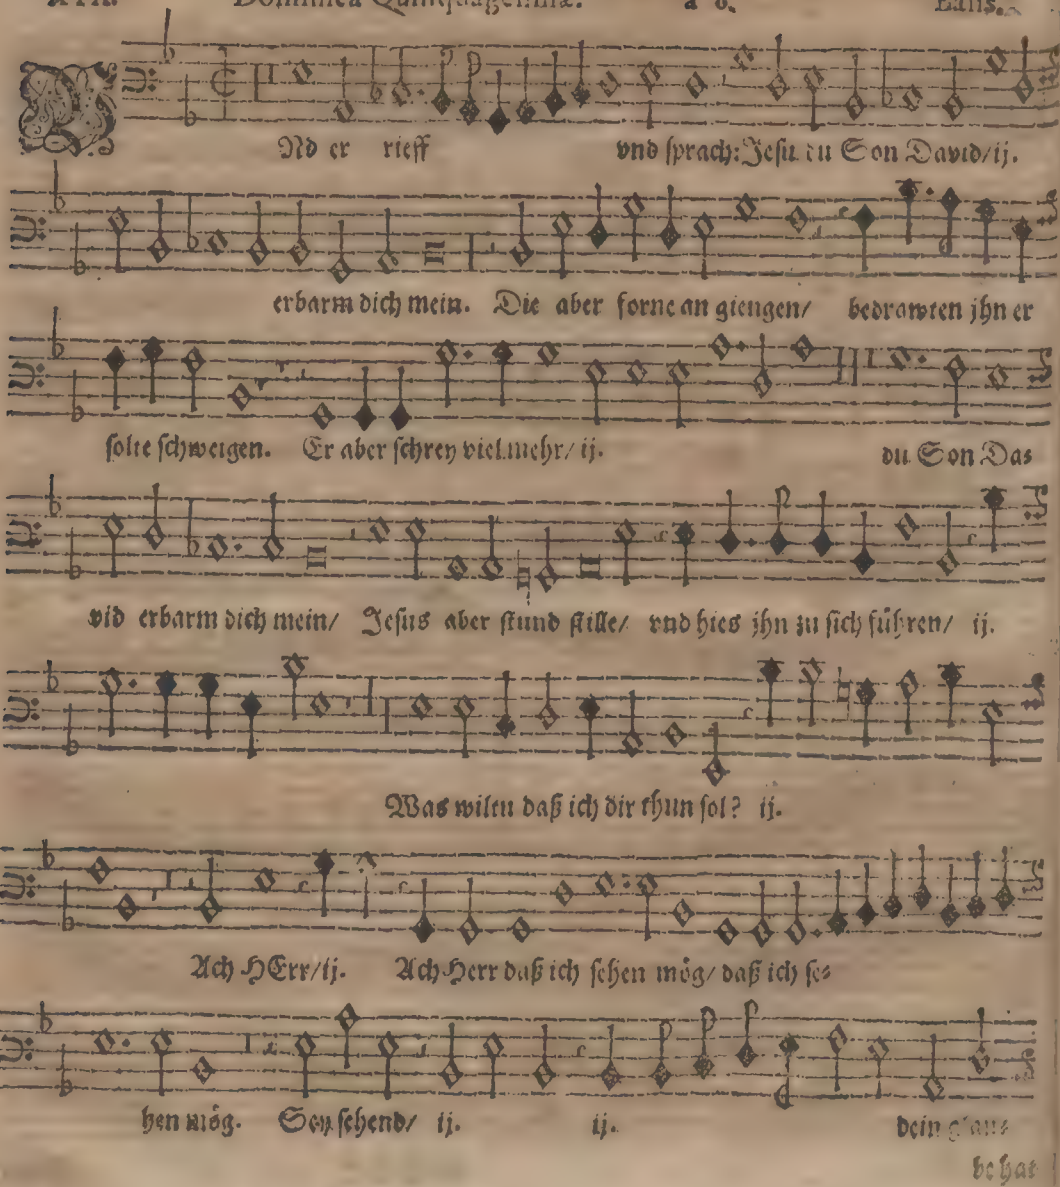 Dominica Quinquagesimæ. Basis.
VNd er rieff vnd sprach: Jesu du Son David/ ij.
erbarm dich mein. Die aber forne an giengen/ bedrawten jhn er
solte schweigen. Er aber schrey viel mehr/ ij. du Son Da⸗
vid erbarm dich mein/ Jesus aber stund stille/ vnd hies jhn zu sich führen/ ij.
Was wiltu daß ich dir thun sol? ij.
Ach HErr/ ij. Ach Herr daß ich sehen mög/ daß ich se⸗
hen mög. Sey sehend/ ij. ij. dein glau⸗
be hat